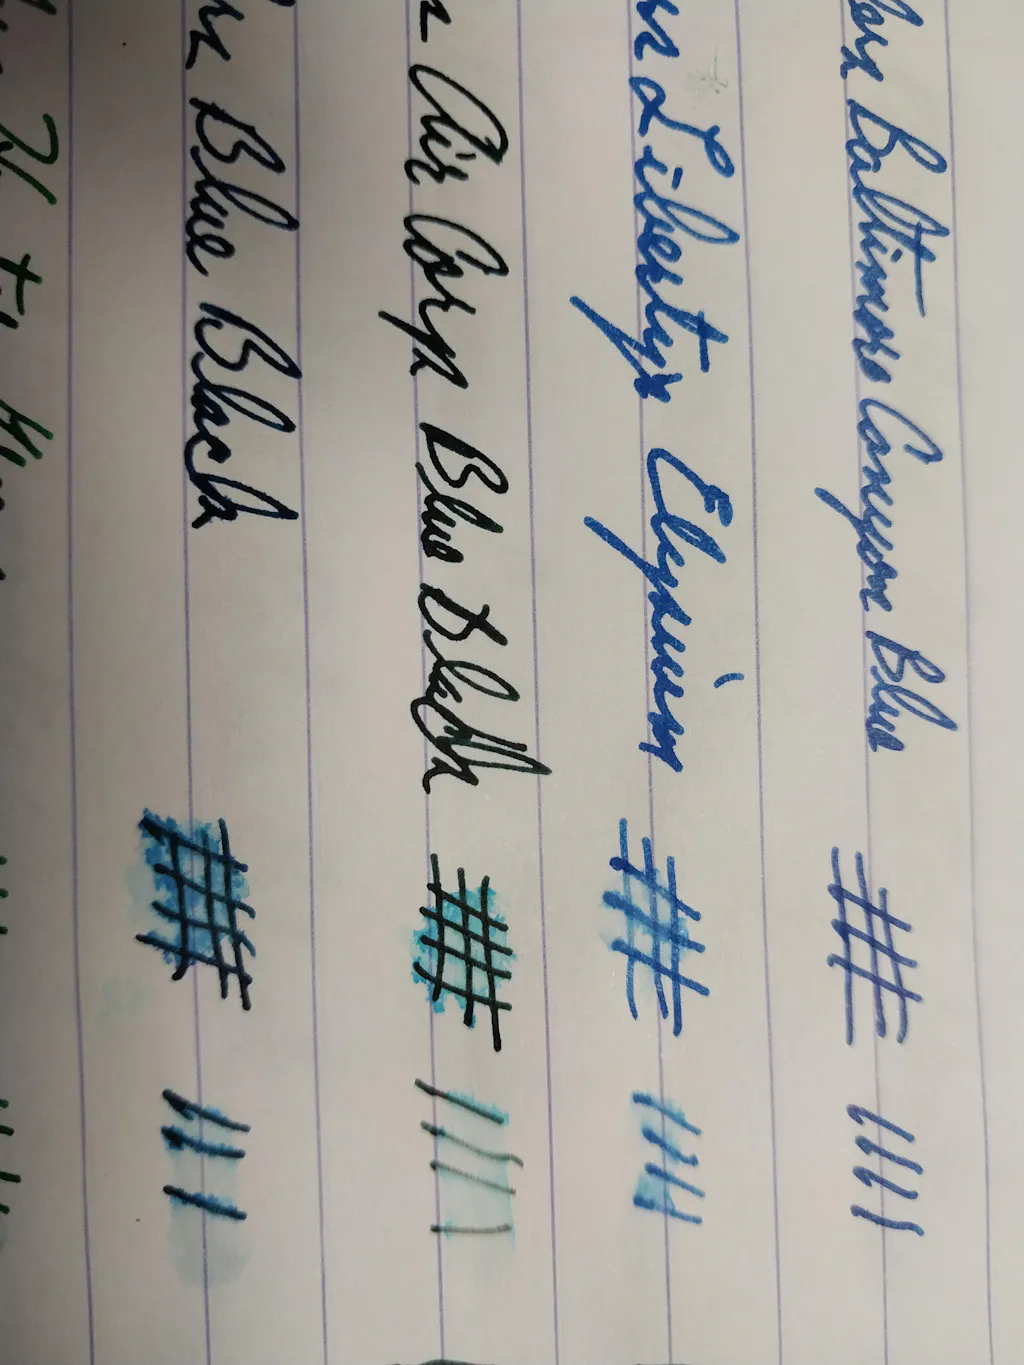 Baltimore Canyon Blue
Libertys Elysium
Air Corp Blue Black
Blue Black